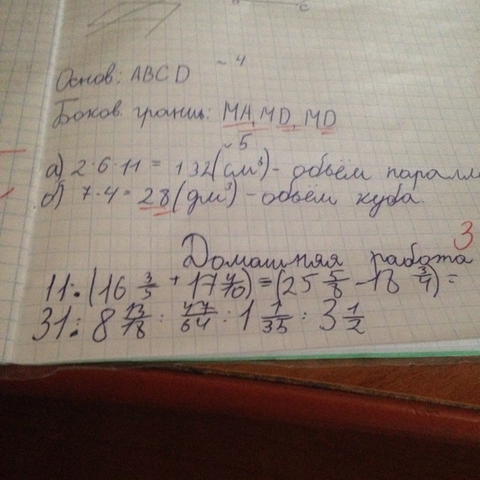 c
~ 4
Основ: ABCD
Боков. границ: MA, MD, MD
~ 5
а) 2·6·11 = 132 (см³) - объём паралл
б) 7·4 = 28 (дм³) - объём куба.
3
Домашняя работа
11: (16 3/5 + 17 4/10) = (25 5/8 - 18 3/4) =
31: 8 13/18 : 77/64 : 1 1/35 : 3 1/2